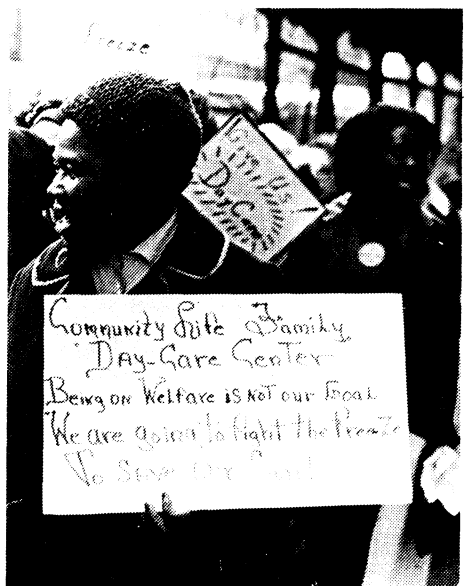 Freeze
Give Us
Day Care
Community Life Family
Day-Care Center
Being on Welfare is Not our Goal
We are going to Fight the Freeze
To Save our